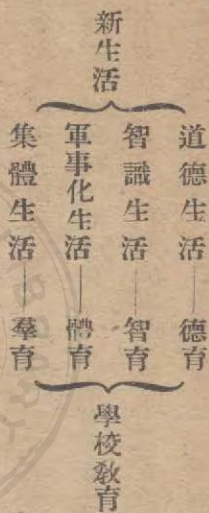 新生活
道德生活——德育
智識生活——智育
軍事化生活——體育
集體生活——羣育
學校敎育